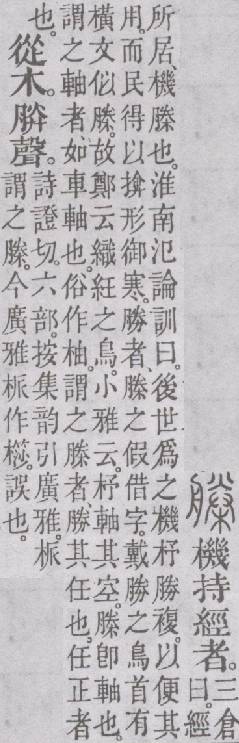 榺機持經者。三倉曰。經
所居、機榺也。淮南氾論訓曰。後世爲之機杼勝複。以便其
用。而民得以揜形御寒。勝者、榺之假借字。戴勝之鳥首有
橫文佀榺。故鄭云織紝之鳥。小雅云。杼軸其空。榺卽軸也。
謂之軸者、如車軸也。俗作柚。謂之榺者、勝其任也。任正者
也。從木。朕聲。詩證切。六部。按集韵引廣雅。㭊
謂之榺。今廣雅㭊作。誤也。